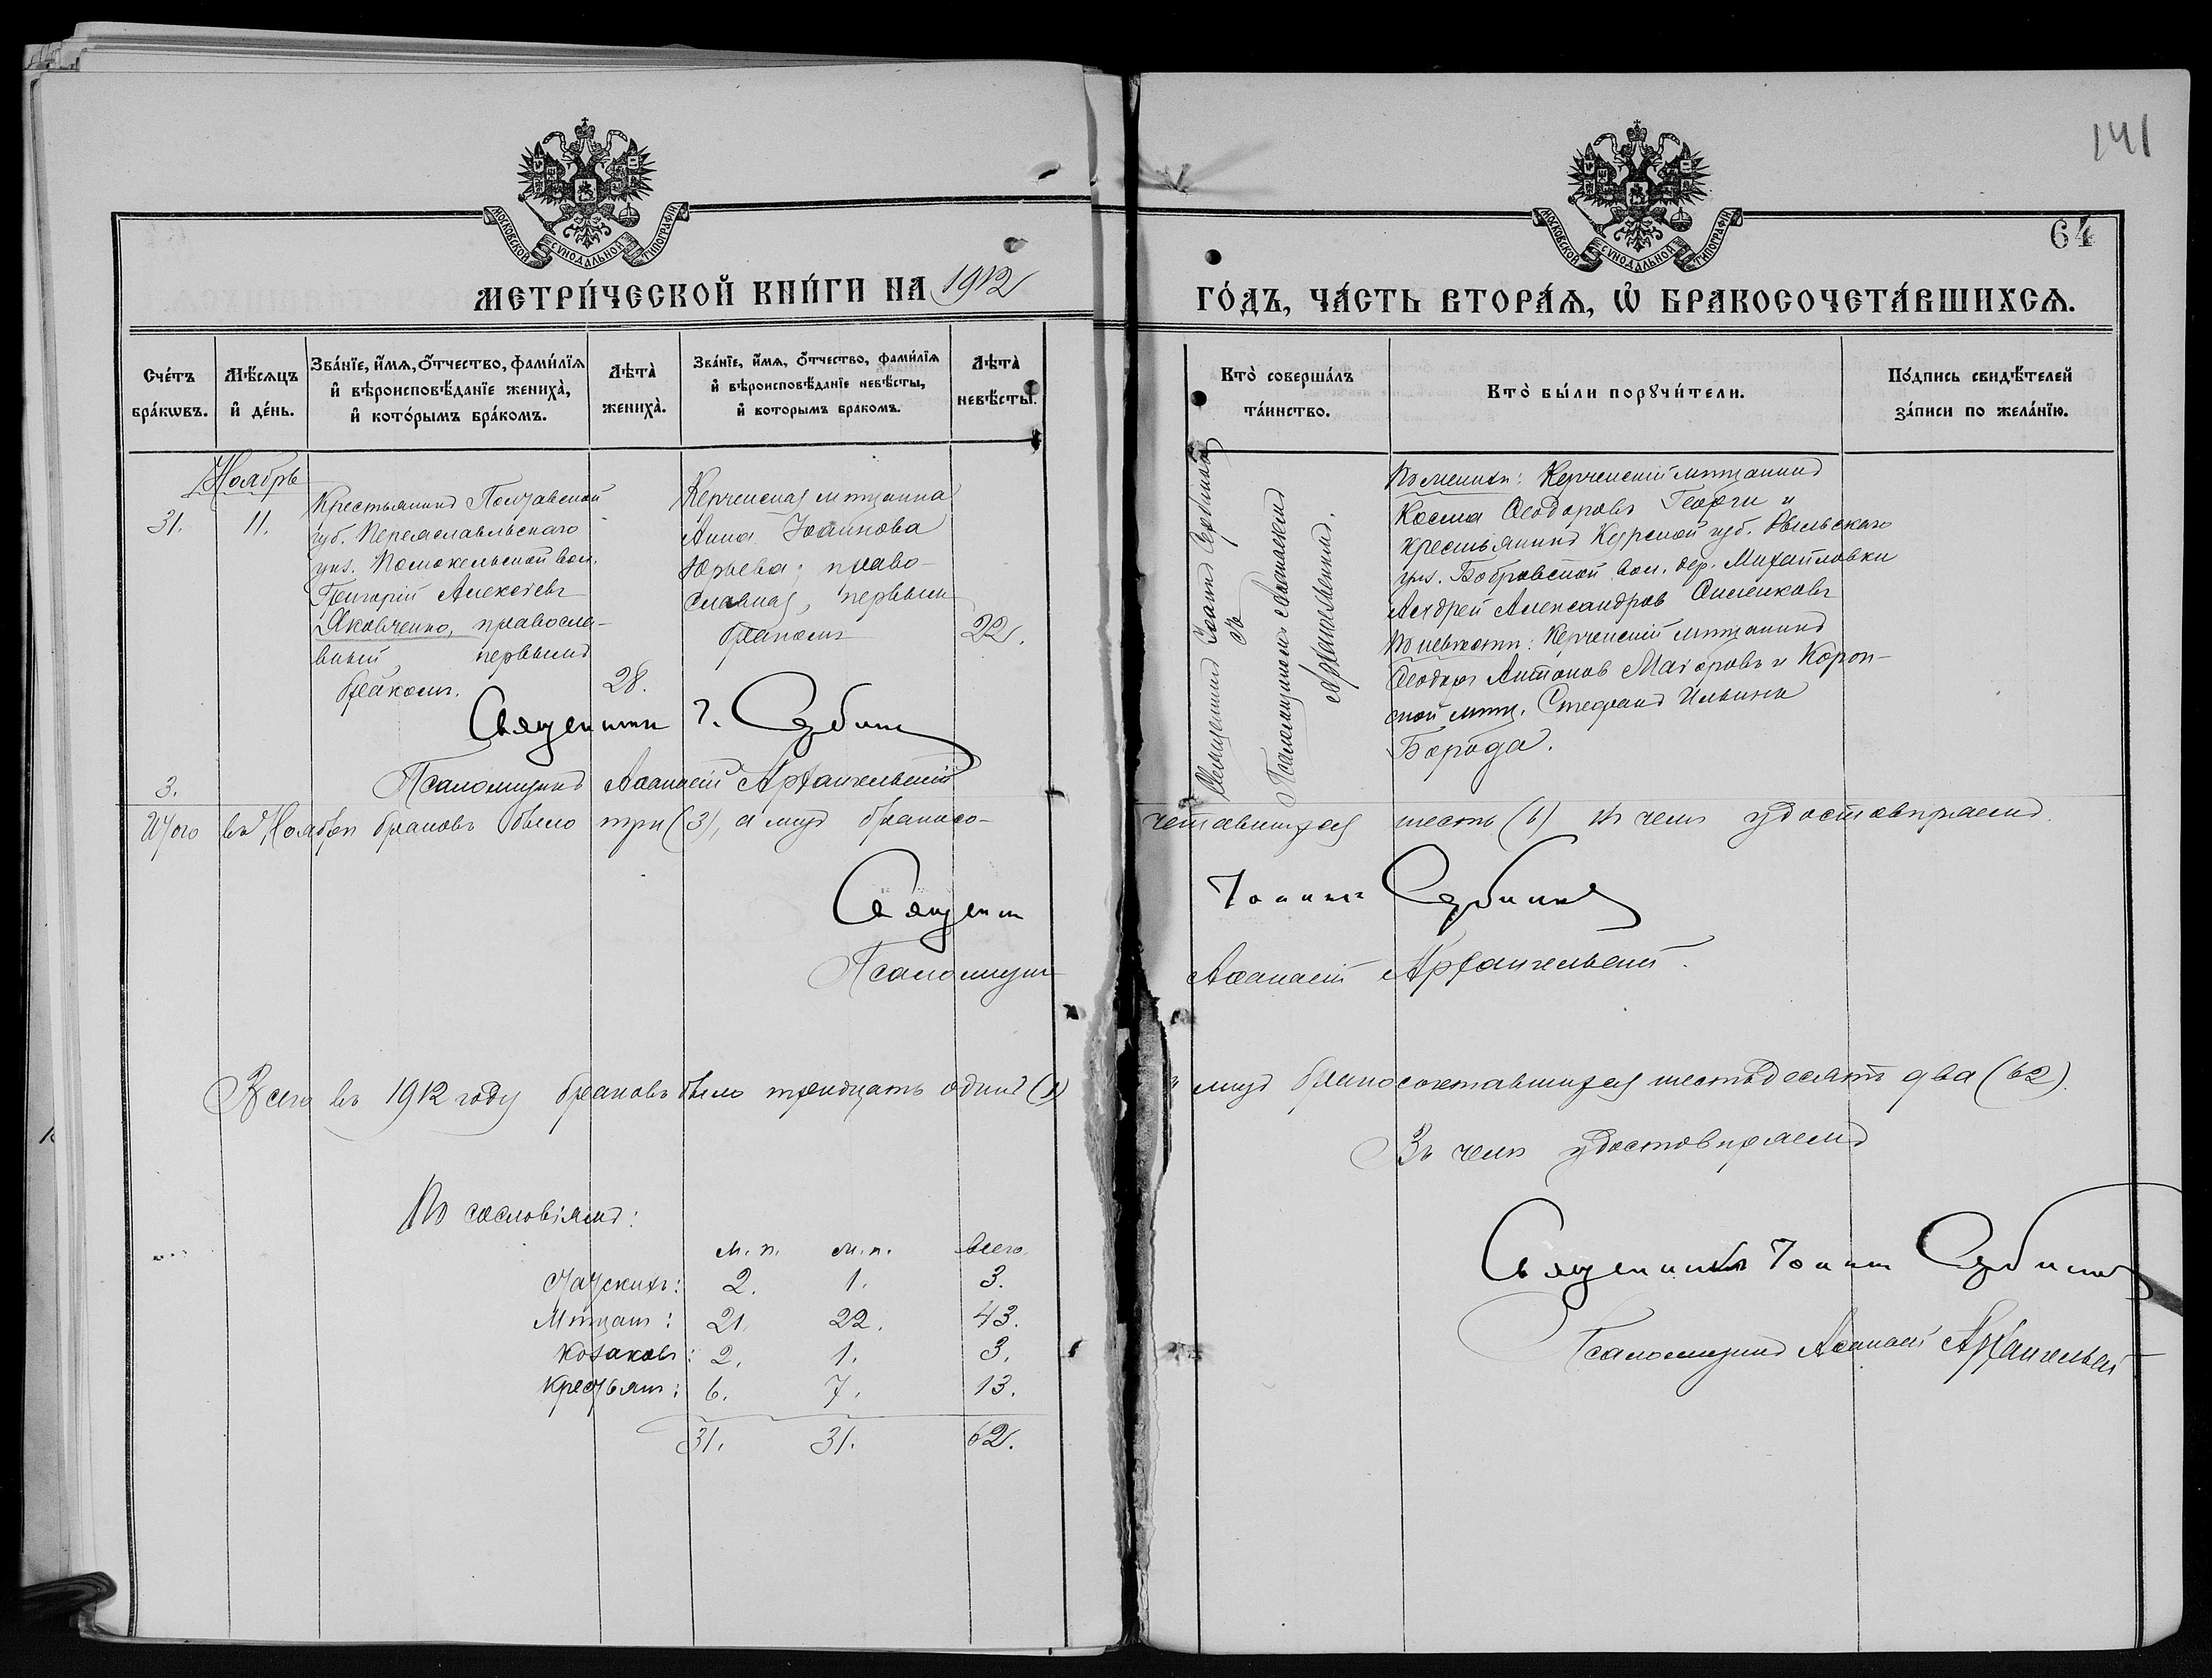 141
64
МОСКОВСКОЙ СУНОДАЛЬНОЙ ТИПОГРАФІИ
МОСКОВСКОЙ СУНОДАЛЬНОЙ ТИПОГРАФІИ
МЕТРИ́ЧЕСКОЙ КНИ́ГИ НА 1912
ГО́ДЪ, ЧА́СТЬ ВТОРА́Я, Ѡ БРАКОСОЧЕТА́ВШИХСЯ.
Сче́тъ бра́кѡвъ.
Мѣ́сяцъ и де́нь.
Зва́нїе, и́мя, ѻ́тчество, фами́лїя и вѣроисповѣ́данїе жениха̀, и кото́рымъ бра́комъ.
Лѣта̀ жениха̀.
Зва́нїе, и́мя, ѻ́тчество, фами́лїя и вѣроисповѣ́данїе невѣ́сты, и которымъ бракомъ.
Лѣта̀ невѣ́сты.
Кто̀ соверша́лъ та́инство.
Кто̀ бы́ли порꙋчи́тели.
По́дпись свидѣ́телей за́писи по жела́нїю.
Ноябрь
31.
11.
Крестьянинъ Полтавской
губ. Переяславльскаго
уѣз. Помокельской вол.
Григорій Алексѣевъ
Яковченко, правосла-
вный, первымъ
бракомъ.
28.
Керченская мѣщанка
Анна Іоаннова
Юрьева; право-
славная, первымъ
бракомъ
22.
Священникъ Іоаннъ Сербиновъ
съ
Псаломщикомъ Аѳанасіемъ
Архангельскимъ.
По женихѣ: Керченскій мѣщанинъ
Косма Ѳеодоровъ Георги и
крестьянинъ Курской губ. Рыльскаго
уѣз. Бобровской вол. дер. Михайловки
Андрей Александровъ Анненковъ
По невѣстѣ: Керченскій мѣщанинъ
Ѳеодоръ Антоновъ Маіоровъ и Короп-
ской мѣщ. Стефанъ Ильинъ
Борода.
Священникъ І. Сербинов
Псаломщикъ Аѳанасій Архангельскій
3.
Итого въ Ноябрѣ браковъ было три (3), а лицъ бракосо-
четавшихся шесть (6) въ чемъ удостовѣряемъ.
Священник Іоаннъ Сербиновъ
Псаломщик Аѳанасій Архангельскій.
Всего въ 1912 году браковъ было тридцать одинъ (31)
лицъ бракосочетавшихся шестьдесятъ два (62).
Въ чемъ удостовѣряемъ
Священникъ Іоанн Сербинов
Псаломщикъ Аѳанасій Архангельскій
По сословіямъ:
м. п. ж. п. всего
Статскихъ: 2. 1. 3.
Мѣщанъ: 21. 22. 43.
Козаковъ: 2. 1. 3.
Крестьянъ: 6. 7. 13.
31. 31. 62.